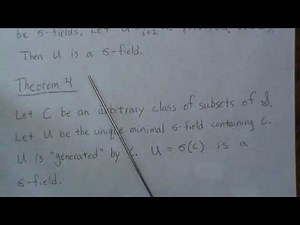 be σ-fields. Let U
Then U is a σ-field.
Theorem 4
Let C be an arbitrary class of subsets of
Let U be the unique minimal σ-field containing C.
U is "generated" by C. U = σ(C) is a
σ-field.